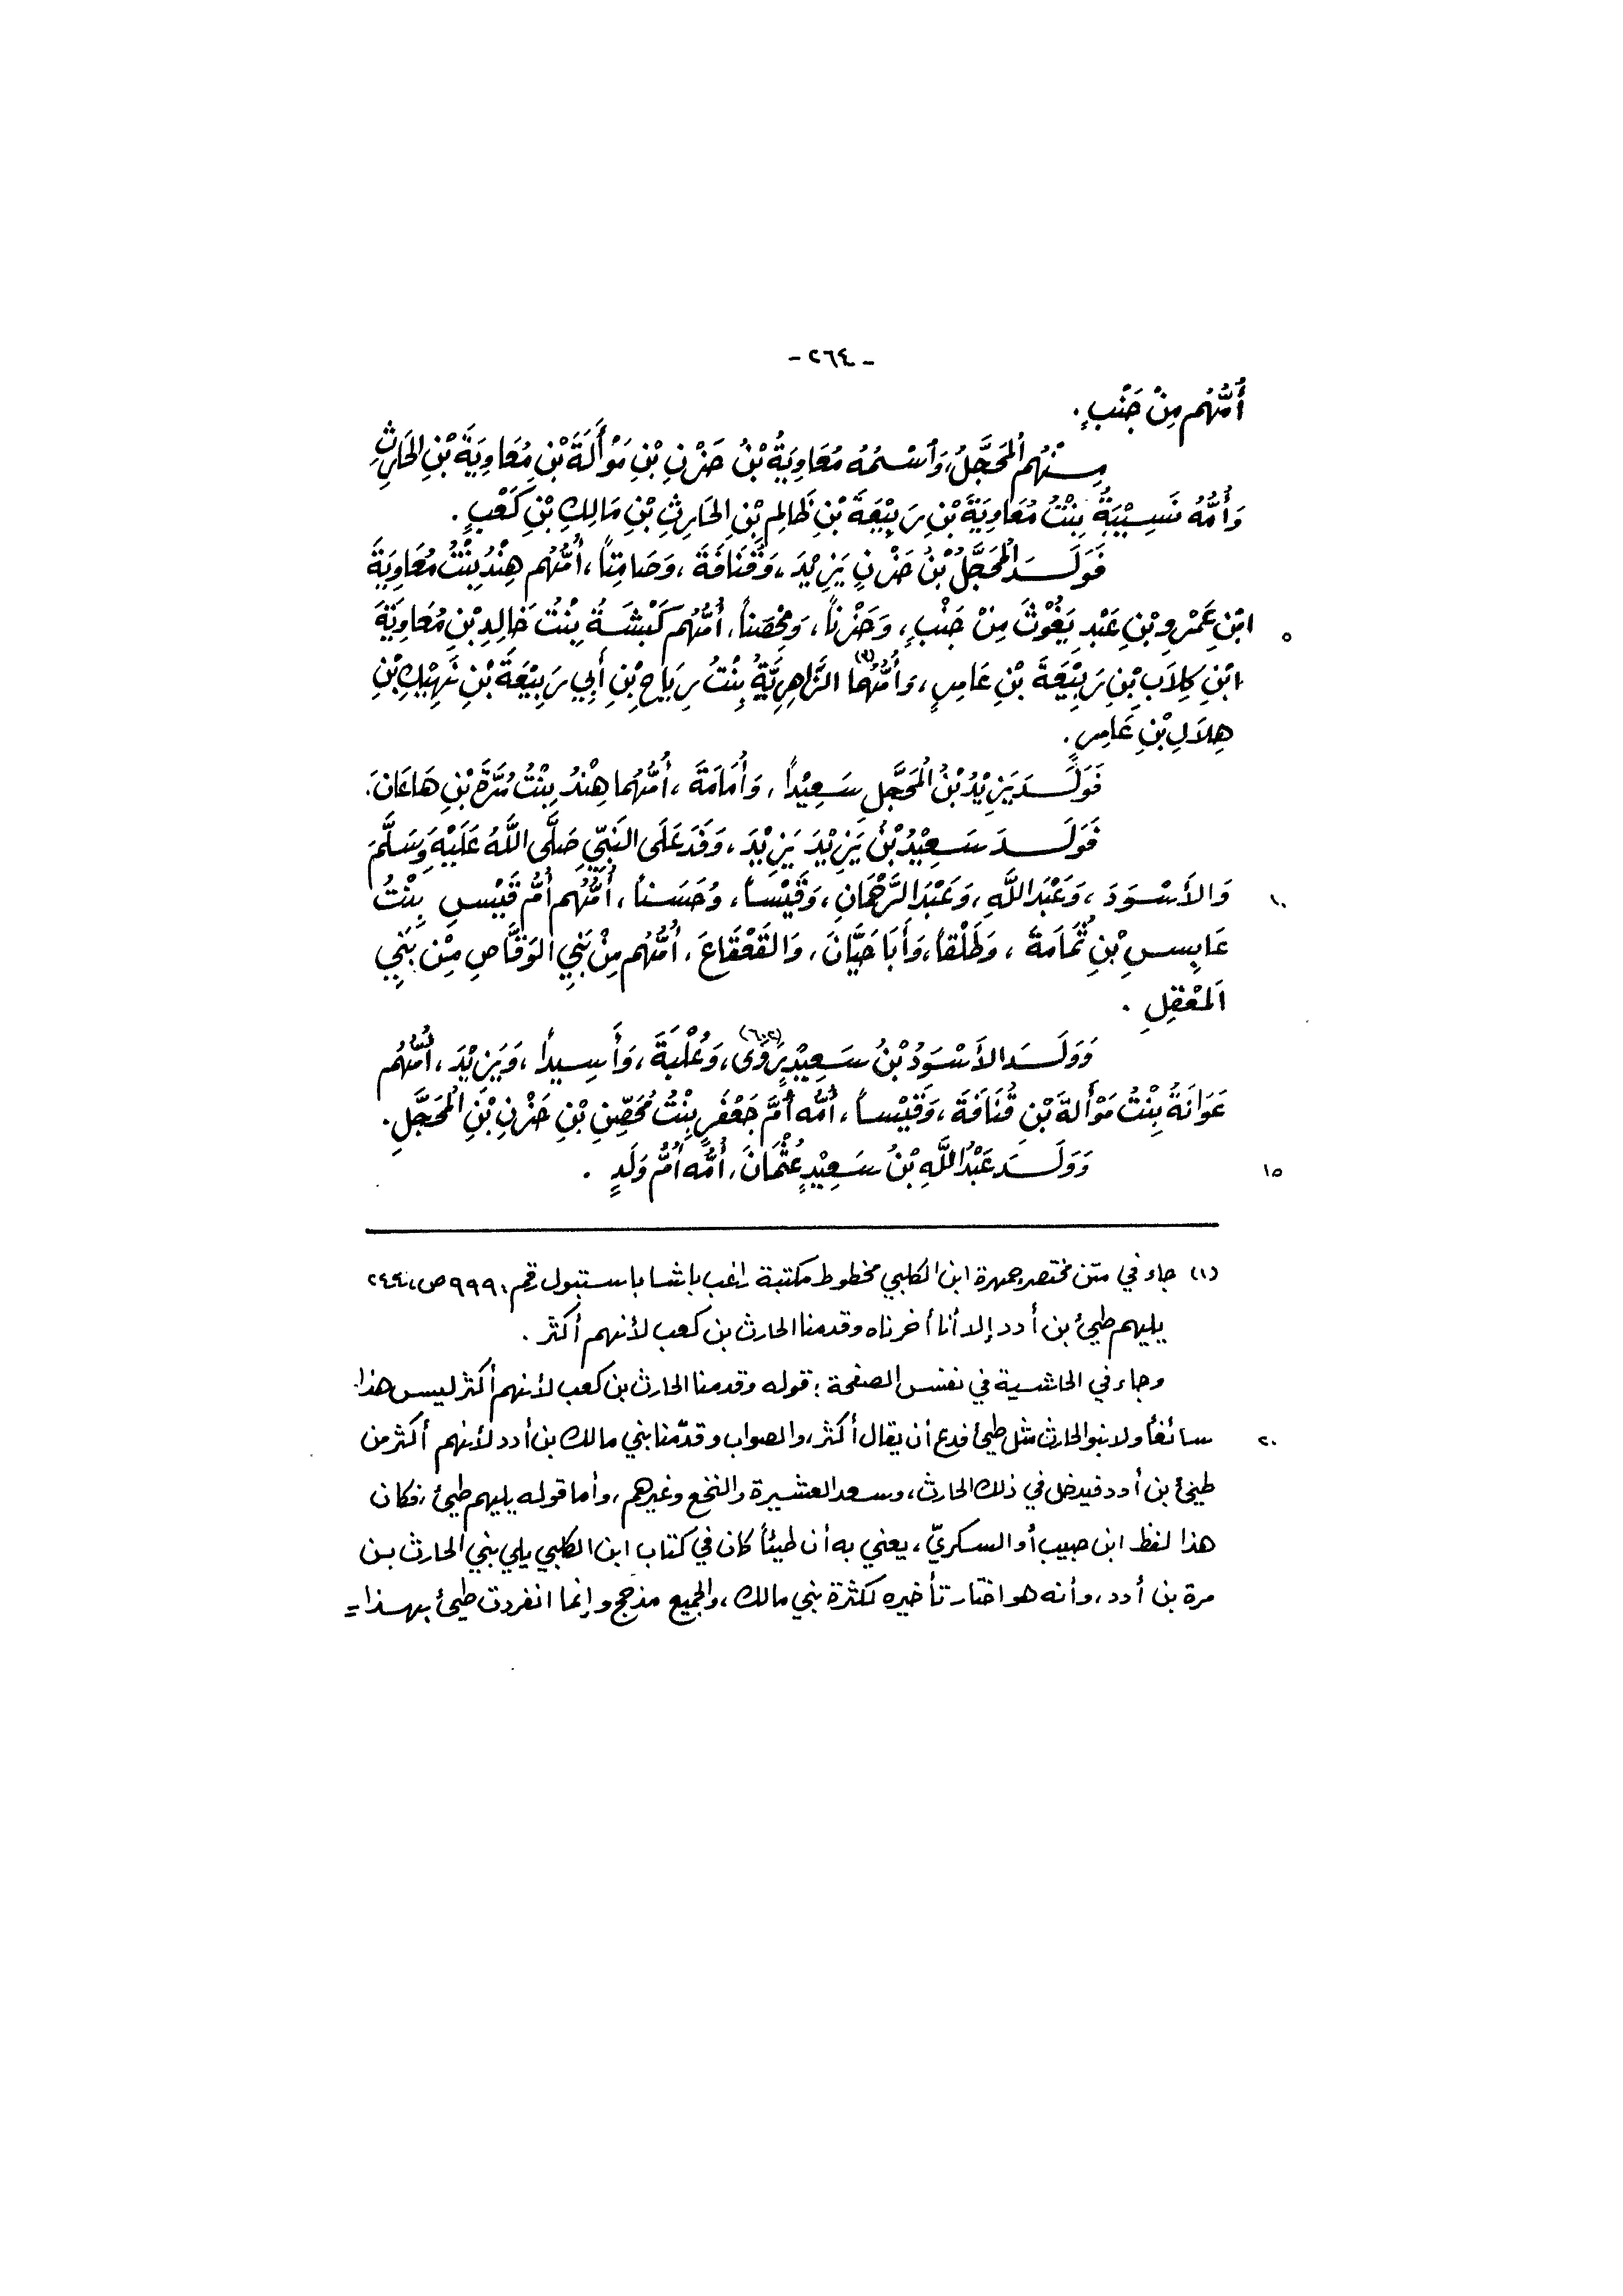 - ٢٦٤ -
أُمُّهُم مِنْ جَنْبٍ .
مِنْهُم المُحَجَّلُ، وَٱسْمُهُ مُعَاوِيَةُ بْنُ حَزْنِ بْنِ مَوْأَلَةَ بْنِ مُعَاوِيَةَ بْنِ الحَارِثِ
وَأُمُّهُ نَسِيْبَةُ بِنْتُ مُعَاوِيَةَ بْنِ رَبِيْعَةَ بْنِ ظَالِمِ بْنِ الحَارِثِ بْنِ مَالِكِ بْنِ كَعْبٍ .
فَوَلَدَ المُحَجَّلُ بْنُ حَزْنٍ يَزِيْدَ، وَقُنَافَةَ، وَصَامِتاً، أُمُّهُم هِنْدُ بِنْتُ مُعَاوِيَةَ
٥ ابْنِ عَمْرِو بْنِ عَبْدِ يَغُوْثَ مِنْ جَنْبٍ، وَحَزْناً، وَمِحْصَناً، أُمُّهُم كَبْشَةُ بِنْتُ خَالِدِ بْنِ مُعَاوِيَةَ
ابْنِ كِلاَبِ بْنِ رَبِيْعَةَ بْنِ عَامِرٍ، وَأُمُّهُمَا الزَّاهِرِيَّةُ بِنْتُ رِيَاحِ بْنِ أَبِي رَبِيْعَةَ بْنِ نَهِيْكِ بْنِ
هِلاَلِ بْنِ عَامِرٍ .
فَوَلَدَ يَزِيْدُ بْنُ المُحَجَّلِ سَعِيْداً، وَأُمَامَةَ، أُمُّهُما هِنْدُ بِنْتُ مُرَّةَ بْنِ هَاعَانَ.
فَوَلَدَ سَعِيْدُ بْنُ يَزِيْدَ يَزِيْدَ، وَفَدَ عَلَى النَبِيِّ صَلَّى اللَّهُ عَلَيْهِ وَسَلَّمَ
١٠ وَالأَسْوَدَ، وَعَبْدَ اللَّهِ، وَعَبْدَ الرَّحْمَانِ، وَقَيْساً، وَحَسَناً، أُمُّهُم أُمُّ قَيْسِ بِنْتُ
عَابِسِ بْنِ ثُمَامَةَ، وَطَلْقاً، وَأَبَا حَيَّانَ، وَالقَعْقَاعَ، أُمُّهُم مِنْ بَنِي الوَقَّاصِ مِنْ بَنِي
المَعْقِلِ .
وَوَلَدَ الأَسْوَدُ بْنُ سَعِيْدٍ رَوَى، وَعُلْبَةَ، وَأَسِيداً، وَيَزِيْدَ، أُمُّهُم
عَوَانَةُ بِنْتُ مَوْأَلةَ بْنِ قُنَافَةَ، وَقَيْساً، أُمُّه أُمُّ جَعْفَرٍ بِنْتُ مُحَصِّنِ بْنِ حَزْنِ بْنِ المُحَجَّلِ.
١٥ وَوَلَدَ عَبْدُ اللَّهِ بْنُ سَعِيْدٍ عُثْمَانَ، أُمُّه أُمُّ وَلَدٍ .
(١) جاء في متن مختصر جمهرة ابن الكلبي مخطوط مكتبة راغب باشا باستبول رقم: ٩٩٩ ص،
يليهم طيئ بن أدد إلا أنا أخرناه وقدمنا الحارث بن كعب لأنهم أكثر .
وجاء في الحاشية في نفس الصفحة : قوله وقدمنا الحارث بن كعب لأنهم أكثر ليس هذا
٢٠ سائغاً ولا بنو الحارث مثل طيئ فدع أن يقال أكثر، والصواب وقدّمنا بني مالك بن أدد لأنهم أكثر من
طيئ بن أدد فيدخل في ذلك الحارث، وسعد العشيرة والنخع وغيرهم، وأما قوله يليهم طيئ، فكان
هذا لفظ ابن حبيب أو السكريّ، يعني به أن طيئاً كان في كتاب ابن الكلبي يلي بني الحارث بن
مرة بن أدد، وأنه هو اختار تأخيره لكثرة بني مالك، والجميع مذحج وإنما انفردت طيئ بهذا =